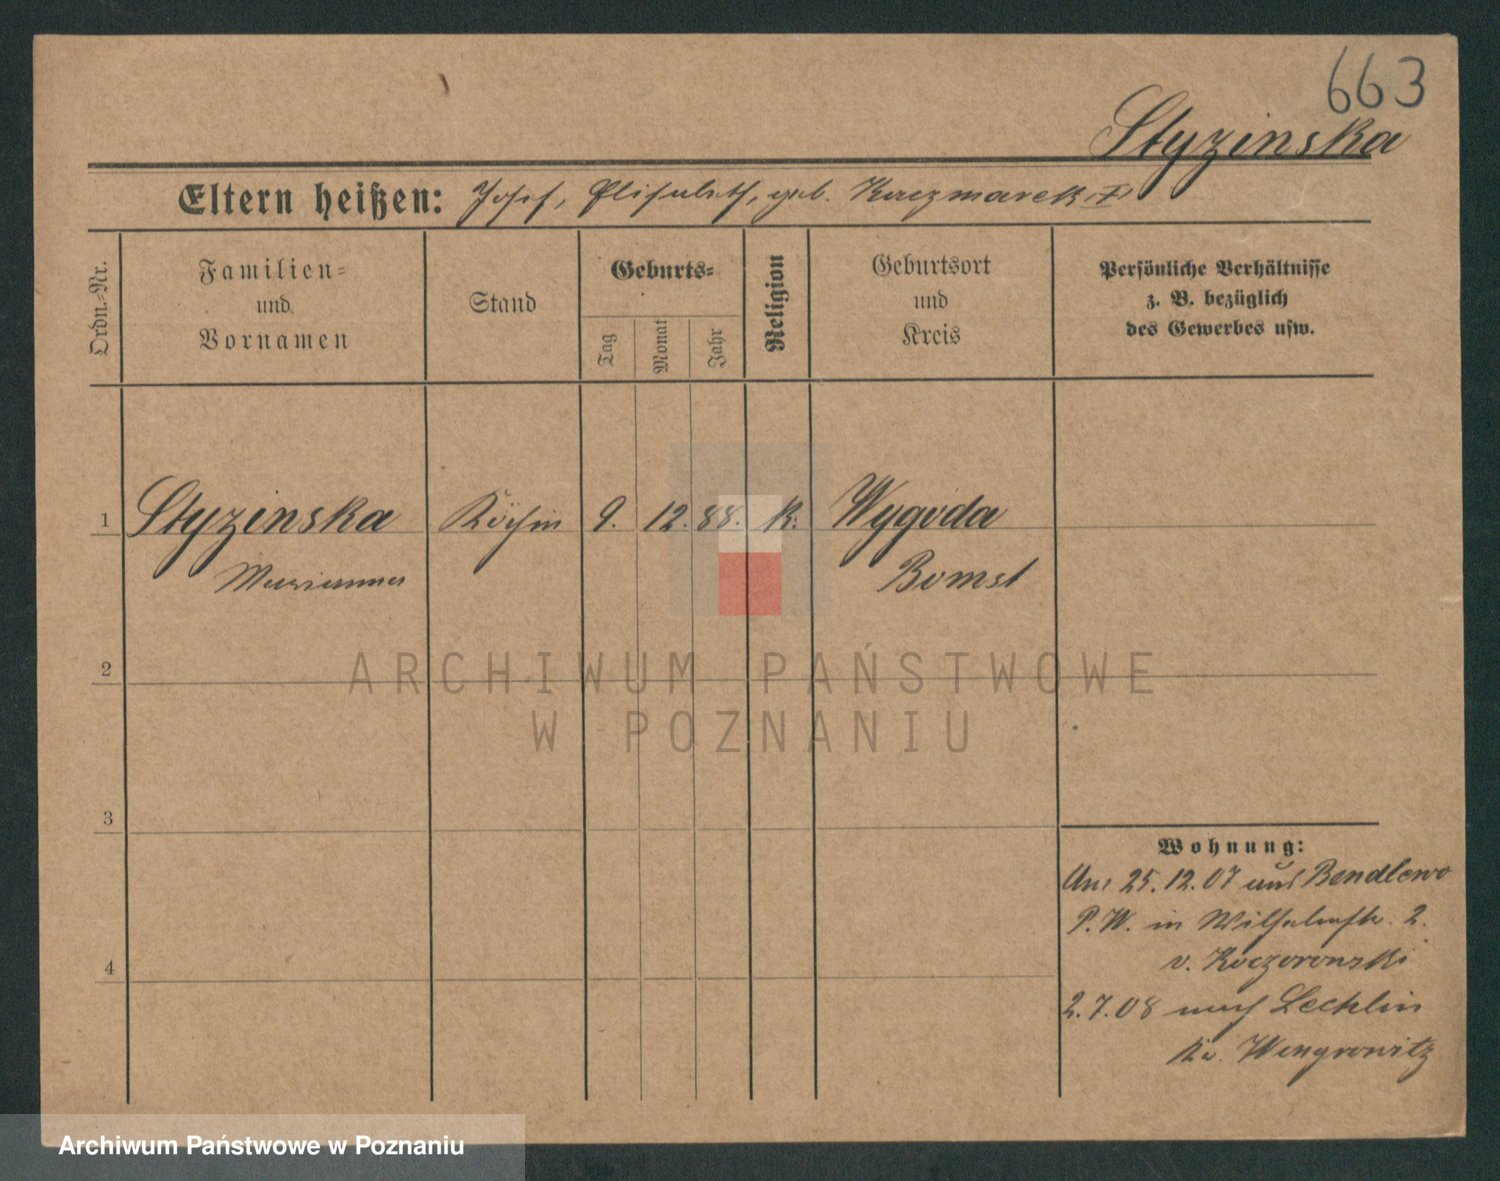 663
Styzinska
Eltern heißen: Josef, Elisabeth, geb. Kaczmarek
Ordn.-Nr.
Familien-
und
Vornamen
Stand
Geburts-
Tag
Monat
Jahr
Religion
Geburtsort
und
Kreis
Persönliche Verhältnisse
z. B. bezüglich
des Gewerbes usw.
1 Styzinska Köchin 9. 12. 88. K. Wygoda
Marianna Bomst
2
3
4
ARCHIWUM PAŃSTWOWE
W POZNANIU
Wohnung:
Am 25.12.07 aus Bendlewo
P.W. in Wilhelmstr. 2.
v. Koczorowski
2.7.08 nach Lechlin
Kr. Wongrowitz
Archiwum Państwowe w Poznaniu